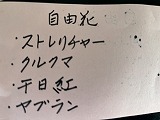 自由花
・ストレリチャー
・クルクマ
・千日紅
・ヤブラン